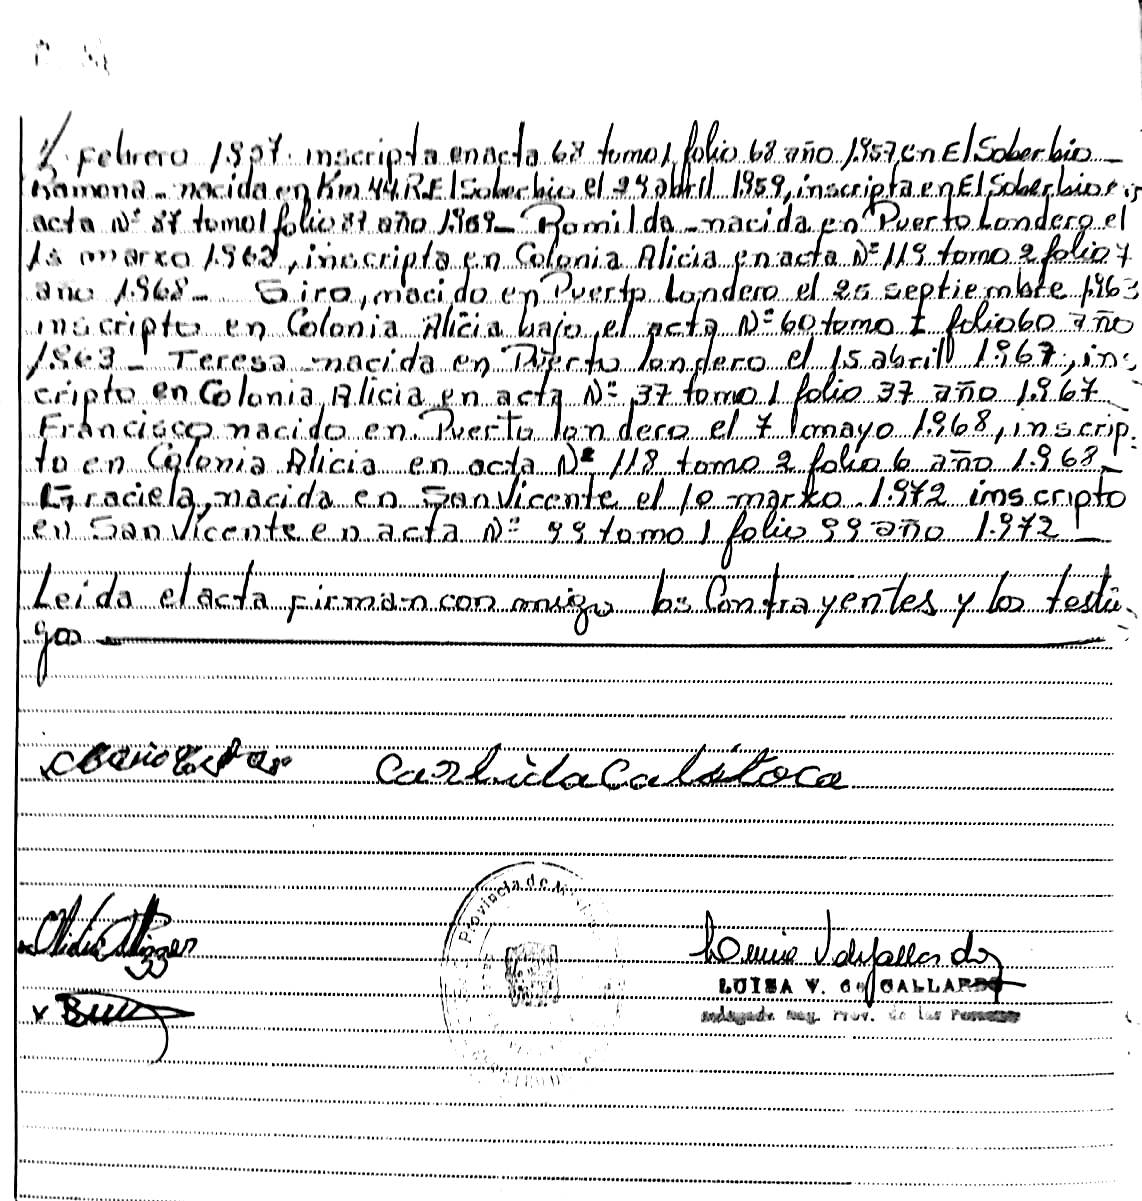 // Febrero 1.957. inscripta en acta 68 tomo 1 folio 68 año 1.957 en El Soberbio -
Ramona - nacida en Km 44 R. El Soberbio el 29 abril 1.959, inscripta en El Soberbio
acta Nº 87 tomo 1 folio 87 año 1.969 - Romilda - nacida en Puerto Londero el
15 marzo 1.962, inscripta en Colonia Alicia en acta Nº 119 tomo 2 folio 7
año 1.968 - Siro, nacido en Puerto Londero el 25 septiembre 1.963
inscripto en Colonia Alicia bajo el acta Nº 60 tomo I folio 60 año
1.963 - Teresa nacida en Puerto Londero el 15 abril 1.967, ins-
cripto en Colonia Alicia en acta Nº 37 tomo 1 folio 37 año 1.967
Francisco nacido en Puerto Londero el 7 mayo 1.968, inscrip-
to en Colonia Alicia en acta Nº 118 tomo 2 folio 6 año 1.968 -
Graciela, nacida en San Vicente el 10 marzo 1.972 inscripto
en San Vicente en acta Nº 99 tomo 1 folio 99 año 1.972 -
Leida el acta firman con migo los Contrayentes y los testi-
gos
Provincia de
LUISA V. de GALLARDO